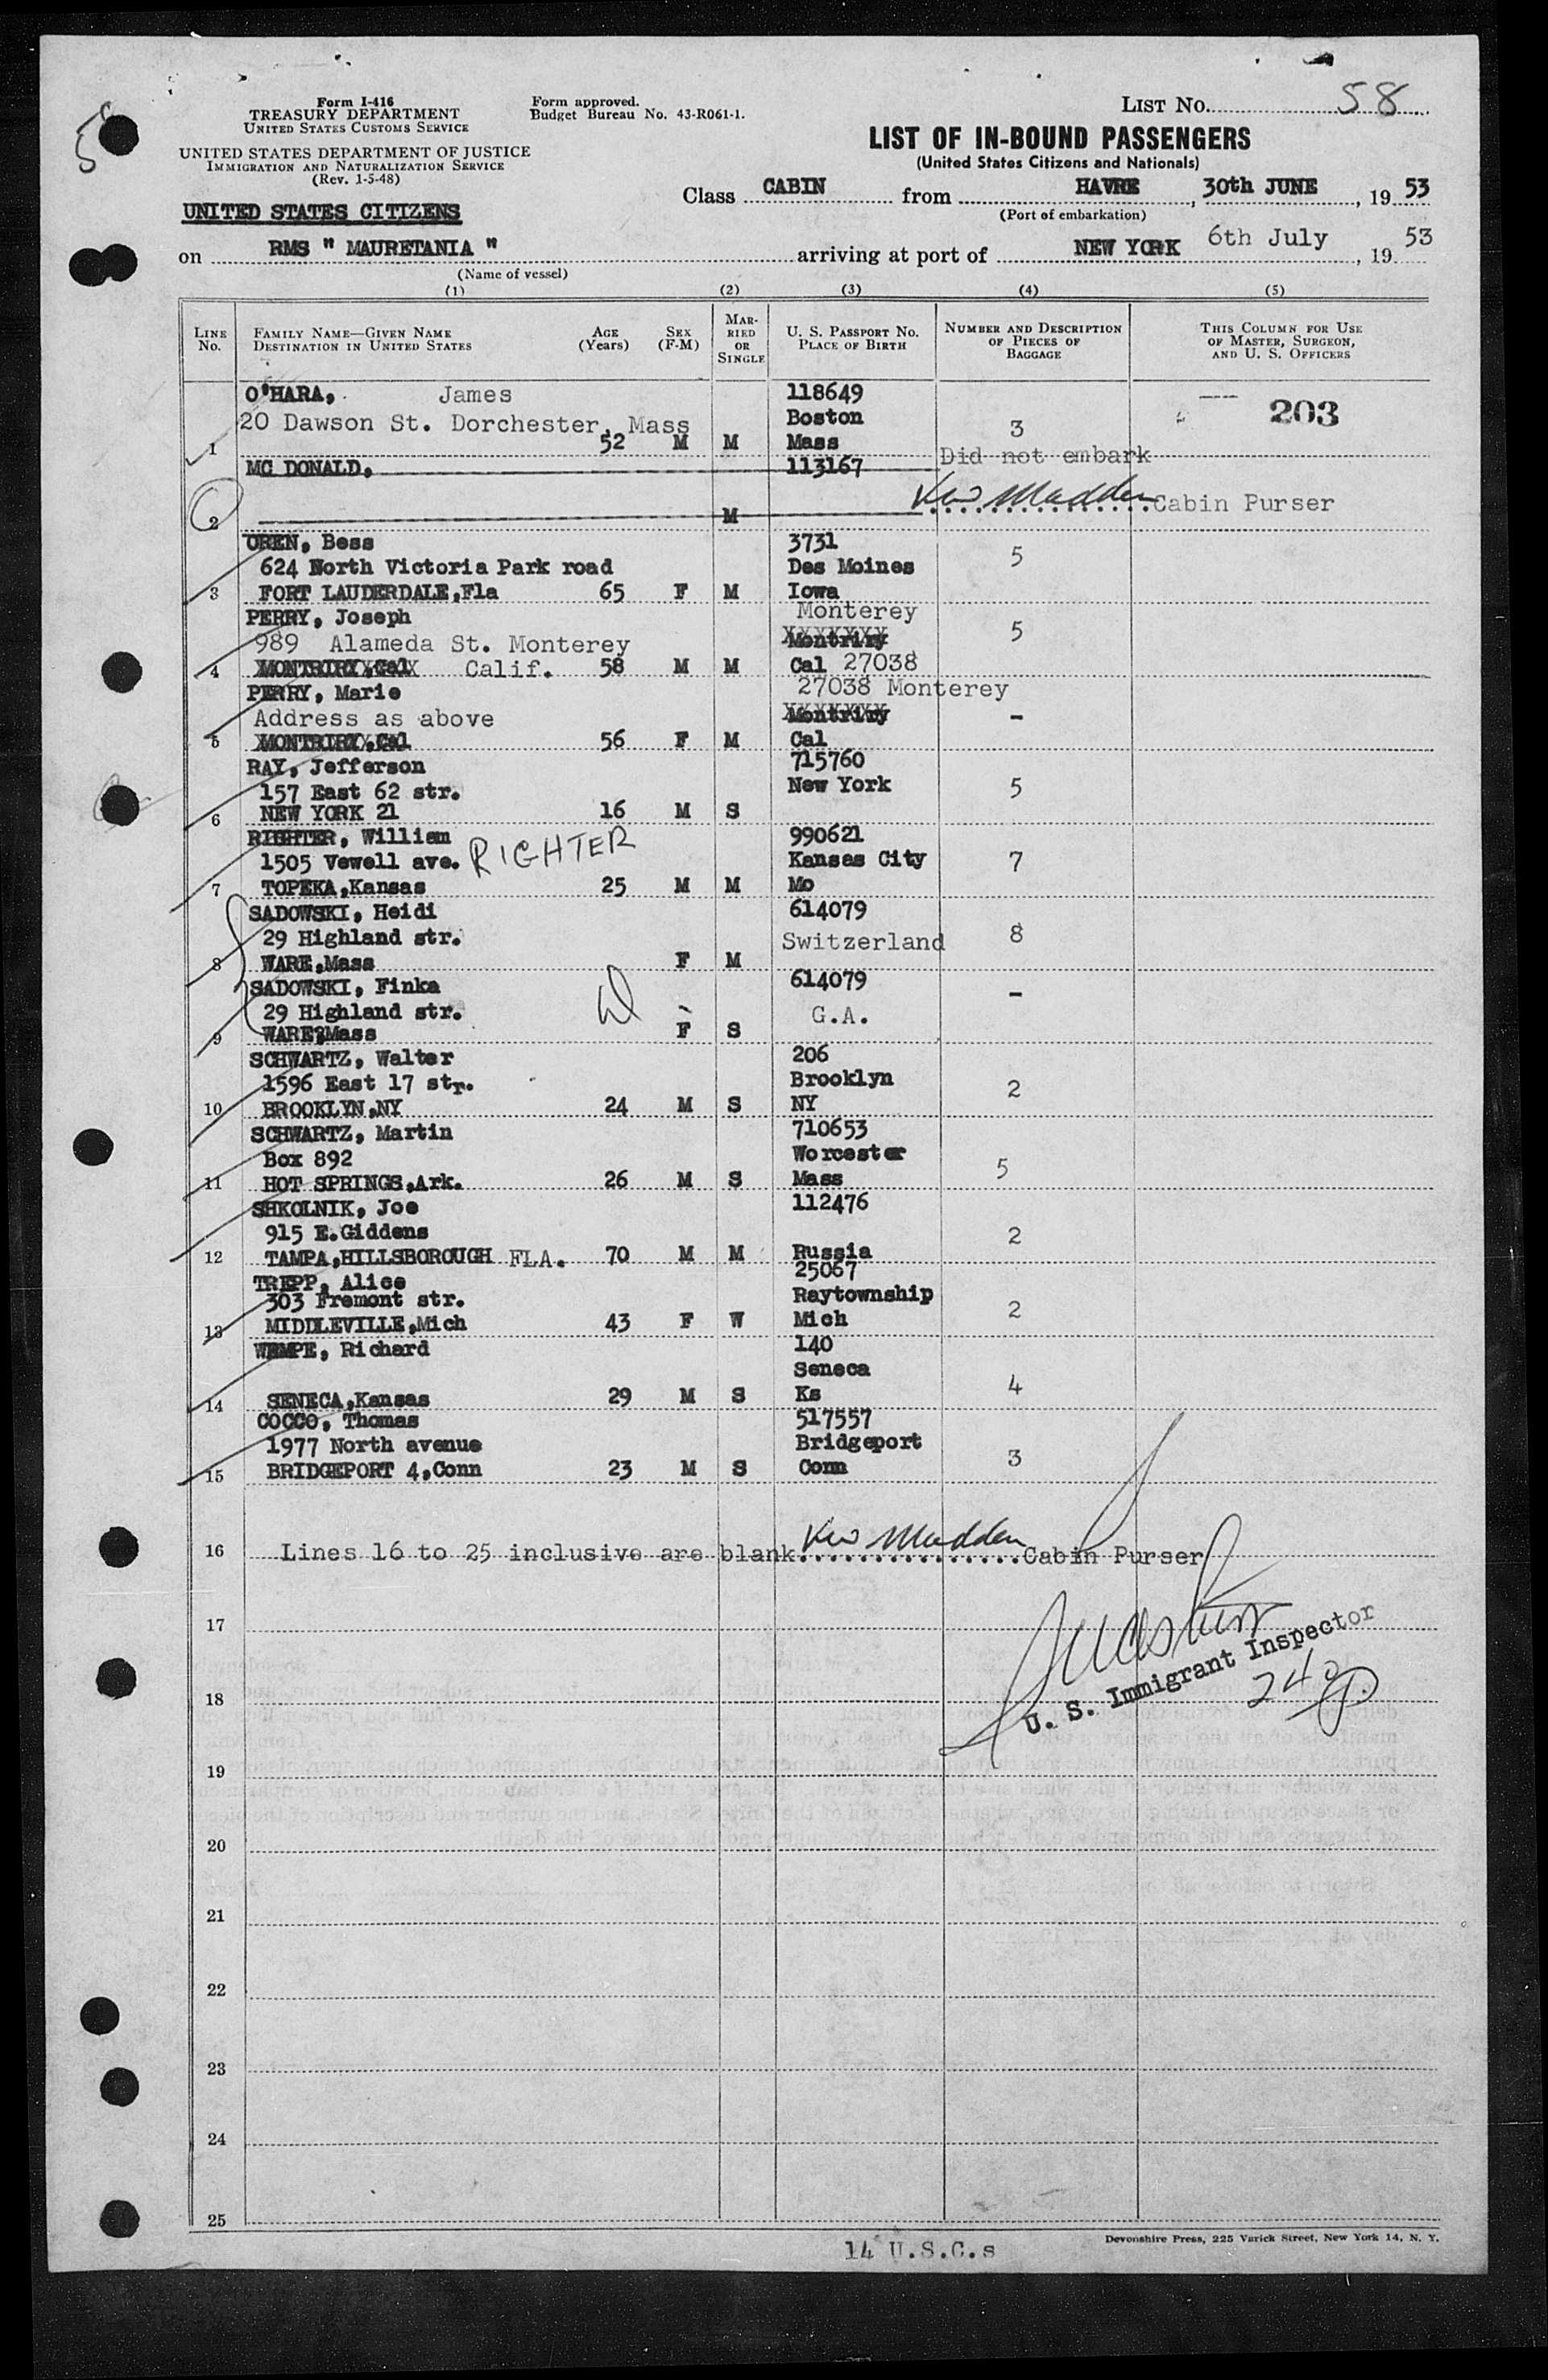 58
Form I-416
TREASURY DEPARTMENT
UNITED STATES CUSTOMS SERVICE
UNITED STATES DEPARTMENT OF JUSTICE
IMMIGRATION AND NATURALIZATION SERVICE
(Rev. 1-5-48)
Form approved.
Budget Bureau No. 43-R061-1.
LIST NO. 58
LIST OF IN-BOUND PASSENGERS
(United States Citizens and Nationals)
Class CABIN from HAVRE, 30th JUNE, 19 53
(Port of embarkation)
UNITED STATES CITIZENS
on RMS " MAURETANIA " arriving at port of NEW YORK 6th July, 19 53
(Name of vessel)
(1) (2) (3) (4) (5)
LINE No.
FAMILY NAME—GIVEN NAME DESTINATION IN UNITED STATES
AGE (Years)
SEX (F-M)
MARRIED OR SINGLE
U. S. PASSPORT NO. PLACE OF BIRTH
NUMBER AND DESCRIPTION OF PIECES OF BAGGAGE
THIS COLUMN FOR USE OF MASTER, SURGEON, AND U. S. OFFICERS
O'HARA, James 118649
20 Dawson St. Dorchester, Mass Boston 3 203
1 52 M M Mass
MC DONALD, 113167 Did not embark
2 M Cabin Purser
OREN, Bess 3731
624 North Victoria Park road Des Moines 5
3 FORT LAUDERDALE,Fla 65 F M Iowa
PERRY, Joseph Monterey
989 Alameda St. Monterey Montriry 5
4 MONTRIRY,Cal Calif. 58 M M Cal 27038
PERRY, Marie 27038 Monterey
Address as above Montriry -
5 MONTRIRY,Cal 56 F M Cal
RAY, Jefferson 715760
157 East 62 str. New York 5
6 NEW YORK 21 16 M S
RIGHTER, William 990621
1505 Vewell ave. RIGHTER Kansas City 7
7 TOPEKA,Kansas 25 M M Mo
SADOWSKI, Heidi 614079
29 Highland str. Switzerland 8
8 WARE,Mass F M
SADOWSKI, Finka 614079 -
29 Highland str. G.A.
9 WARE,Mass F S
SCHWARTZ, Walter 206
1596 East 17 str. Brooklyn 2
10 BROOKLYN,NY 24 M S NY
SCHWARTZ, Martin 710653
Box 892 Worcester 5
11 HOT SPRINGS,Ark. 26 M S Mass
SHKOLNIK, Joe 112476
915 E.Giddens 2
12 TAMPA,HILLSBOROUGH FLA. 70 M M Russia
TREPP, Alice 25067
303 Fremont str. Raytownship 2
13 MIDDLEVILLE,Mich 43 F W Mich
WEMPE, Richard 140
Seneca 4
14 SENECA,Kansas 29 M S Ks
COCCO, Thomas 517557
1977 North avenue Bridgeport 3
15 BRIDGEPORT 4,Conn 23 M S Conn
16 Lines 16 to 25 inclusive are blank Cabin Purser
17
U. S. Immigrant Inspector
18
19
20
21
22
23
24
25
Devonshire Press, 225 Varick Street, New York 14, N. Y.
14 U.S.C.s